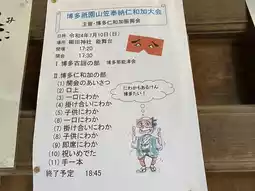 博多祇園山笠奉納仁和加大会
主管・博多仁和加振興会
日時 令和4年7月10日(日)
場所 櫛田神社 能舞台
開場 17:20
開演 17:30
Ⅰ.博多古謡の部
Ⅱ.博多仁和加の部
(1) 開会のあいさつ
(2) 口上
(3) 一口にわか
(4) 掛け合いにわか
(5) 子供にわか
(6) 一口にわか
(7) 掛け合いにわか
(8) 子供にわか
(9) 即席にわか
(10) 祝いめでた
(11) 手一本
終了予定 18:45
にわかもあるけん
博多たい!